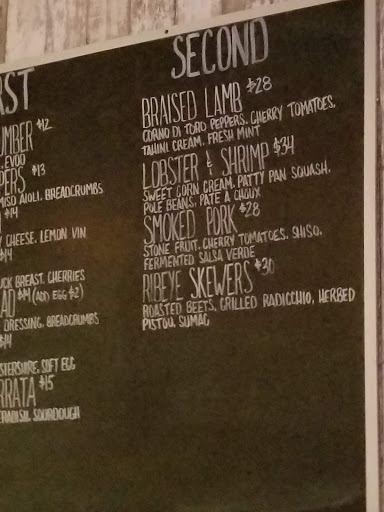 RST
UMBER $12
, EVOO
PERS $13
MISO AIOLI, BREADCRUMBS
$14
Y CHEESE, LEMON VIN
$14
UCK BREAST, CHERRIES
AD $14 (ADD EGG $2)
DRESSING, BREADCRUMBS
$14
STERSHIRE, SOFT EGG
RRATA $15
SOURDOUGH
SECOND
BRAISED LAMB $28
CORNO DI TORO PEPPERS, CHERRY TOMATOES,
TAHINI CREAM, FRESH MINT
LOBSTER & SHRIMP $34
SWEET CORN CREAM, PATTY PAN SQUASH,
POLE BEANS, PATE A CHOUX
SMOKED PORK $28
STONE FRUIT, CHERRY TOMATOES, SHISO,
FERMENTED SALSA VERDE
RIBEYE SKEWERS $30
ROASTED BEETS, GRILLED RADICCHIO, HERBED
PISTOU, SUMAC